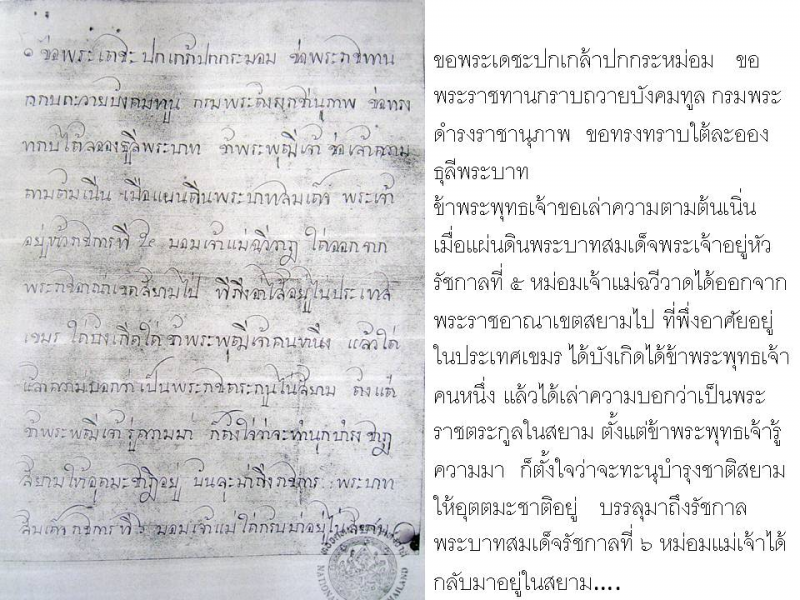 ๑ ขอพระเดชะ ปกเกล้าปกกระมอม ขอพระราชทาน
กราบถวายบังคมทูน กรมพระดำรงราชานุภาพ ขอทรง
ทราบใต้ลอองธูลีพระบาท ข้าพระพุฒิเจ้า ขอเล่าความ
ตามต้นเนิ่น เมื่อแผนดินพระบาทสมเด็จ พระเจ้า
อยู่หัวราชการที่ มอมเจ้าแม่ ได้ออกจาก
พระราชอาณาเขตสยามไป ที่พึ่งอาไส้อยู่ในประเทส
เขมร ได้บังเกิดได้ ข้าพระพุฒิเจ้าคนหนึ่ง แล้วได้
เล่าความบอกว่าเป็นพระราชตระกูนในสยาม ตั้งแต่
ข้าพระพุฒิเจ้ารู้ความมา ก็ตั้งใจว่าจะทำนุกบำรุง
สยามให้อุตมะชาติอยู่ มาถึงราชการ พระบาท
สมเด็จราชการที่ ๖ มอมเจ้าแม่ได้กลบมาอยู่ในสยาม
ขอพระเดชะปกเกล้าปกกระหม่อม ขอ
พระราชทานกราบถวายบังคมทูล กรมพระ
ดำรงราชานุภาพ ขอทรงทราบใต้ละออง
ธุลีพระบาท
ข้าพระพุทธเจ้าขอเล่าความตามต้นเนิ่น
เมื่อแผ่นดินพระบาทสมเด็จพระเจ้าอยู่หัว
รัชกาลที่ ๕ หม่อมเจ้าแม่ฉวีวาดได้ออกจาก
พระราชอาณาเขตสยามไป ที่พึ่งอาศัยอยู่
ในประเทศเขมร ได้บังเกิดได้ข้าพระพุทธเจ้า
คนหนึ่ง แล้วได้เล่าความบอกว่าเป็นพระ
ราชตระกูลในสยาม ตั้งแต่ข้าพระพุทธเจ้ารู้
ความมา ก็ตั้งใจว่าจะทะนุบำรุงชาติสยาม
ให้อุตตมะชาติอยู่ บรรลุมาถึงรัชกาล
พระบาทสมเด็จรัชกาลที่ ๖ หม่อมแม่เจ้าได้
กลับมาอยู่ในสยาม....